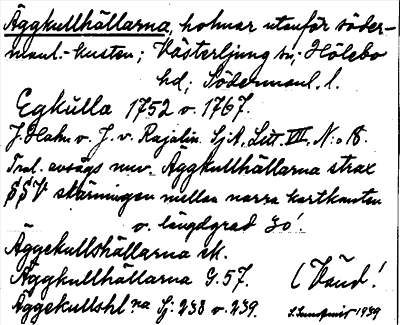 Äggkullhällarna, holmar utanför söder-
manl.-kusten; Västerljung sn; Hölebo
hd; Södermanl. l.
Egkulla 1752 o. 1767.
J. Hahn o. J. v. Rajalin. SjA, Litt. VIII, N:o 18.
Trol. avsågs nuv. Äggkullhällarna strax
SSV skärningen mellan norra kartkanten
o. längdgrad 30'.
Äggekullshällarna ek.
Äggkullhällarna G. 57. (Vänd!
Äggekullshl.na Sj. 238 o. 239. 1939